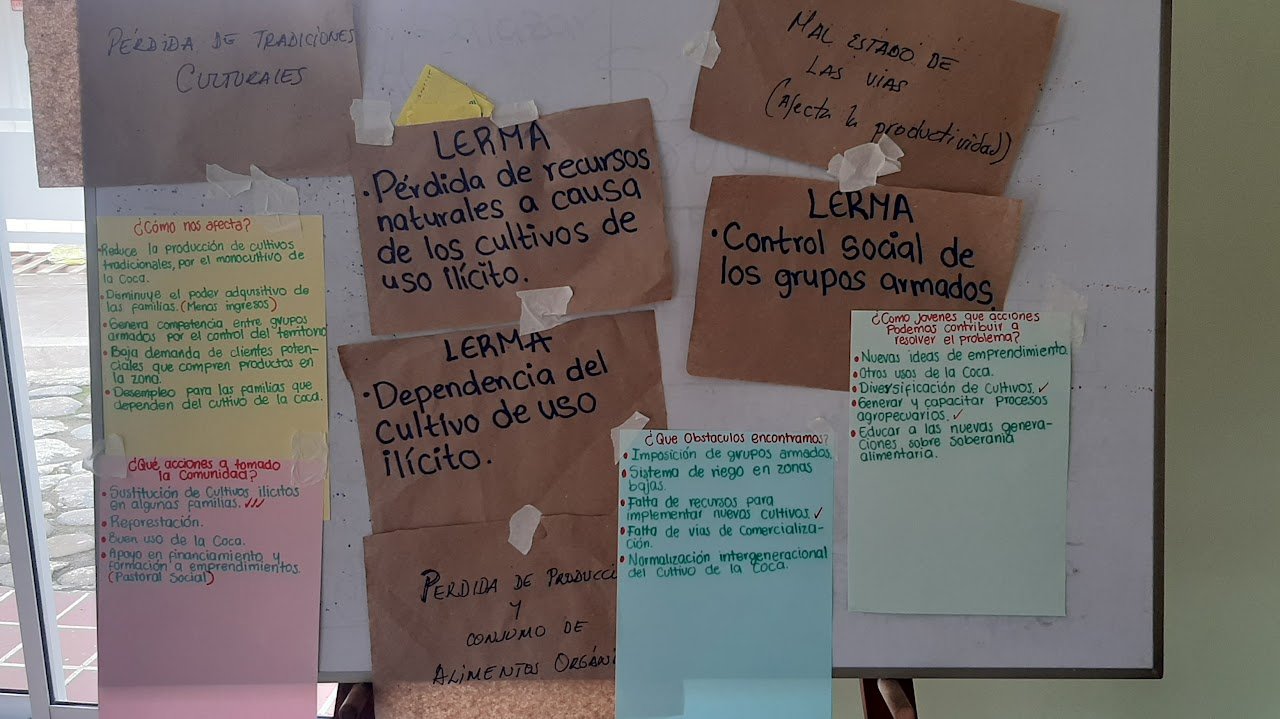 PÉRDIDA DE TRADICIONES
CULTURALES
LERMA
• Pérdida de recursos
naturales a causa
de los cultivos de
uso ilícito.
MAL ESTADO DE
LAS VIAS
(Afecta la productividad)
LERMA
• Control social de
los grupos armados.
¿Cómo nos afecta?
• Reduce la producción de cultivos
tradicionales, por el monocultivo de
la Coca.
• Disminuye el poder adquisitivo de
las familias. (Menos ingresos)
• Genera competencia entre grupos
armados por el control del territorio
• Baja demanda de clientes poten-
ciales que compren productos en
la zona.
• Desempleo para las familias que
dependen del cultivo de la coca.
LERMA
• Dependencia del
cultivo de uso
ilícito.
¿Como Jovenes que acciones
Podemos contribuir a
resolver el problema?
• Nuevas ideas de emprendimiento.
• Otros usos de la Coca.
• Diversificación de Cultivos. ✓
• Generar y capacitar Procesos
agropecuarios. ✓
• Educar a las nuevas genera-
ciones sobre soberanía
alimentaria.
¿Qué acciones a tomado
la Comunidad?
• Sustitución de Cultivos ilicitos
en algunas familias. ✓✓✓
• Reforestación.
• Buen uso de la Coca.
• Apoyo en financiamiento y
formación a emprendimientos.
(Pastoral Social)
¿Que Obstaculos encontramos?
• Imposición de grupos armados.
• Sistema de riego en zonas
bajas.
• Falta de recursos para
implementar nuevas cultivos. ✓
• Falta de vias de comercializa-
ción.
• Normalización intergeneracional
del cultivo de la Coca.
PERDIDA DE PRODUCCI
Y
CONSUMO DE
ALIMENTOS ORGÁNI